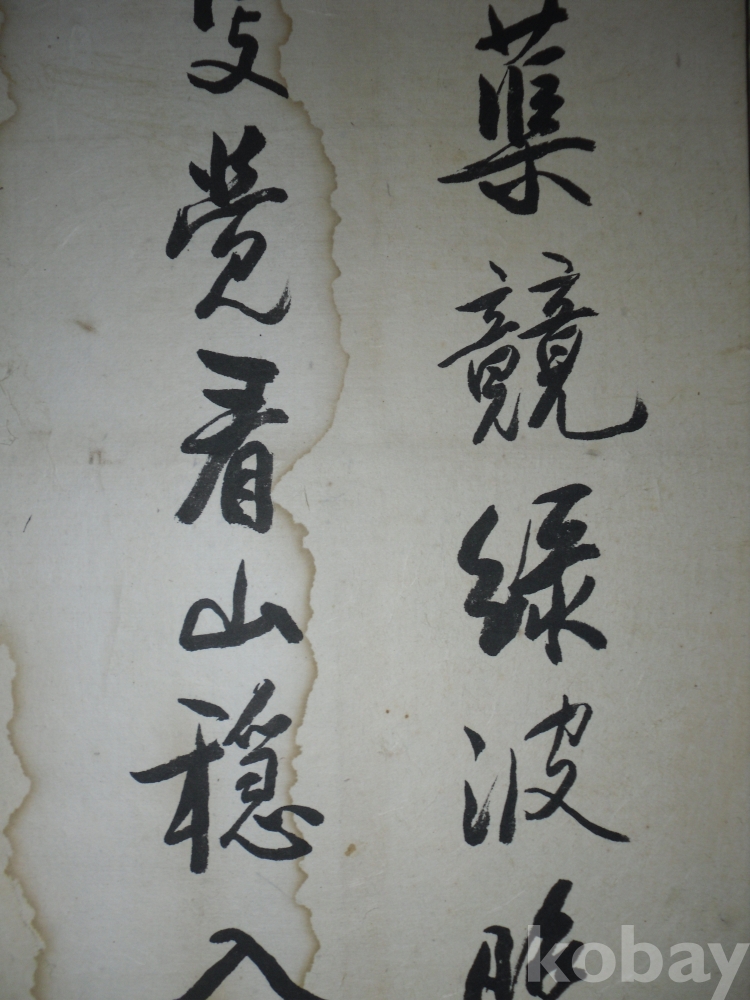 葉競綠波
覺看山穩入
kobay